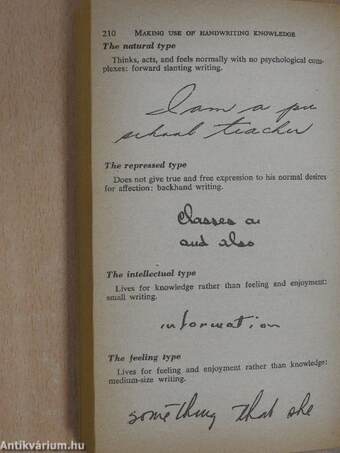 210 MAKING USE OF HANDWRITING KNOWLEDGE
The natural type
Thinks, acts, and feels normally with no psychological com-
plexes: forward slanting writing.
I am a pu
school teacher
The repressed type
Does not give true and free expression to his normal desires
for affection: backhand writing.
classes a
and also
The intellectual type
Lives for knowledge rather than feeling and enjoyment:
small writing.
information
The feeling type
Lives for feeling and enjoyment rather than knowledge:
medium-size writing.
something that she
Antikvárium.hu